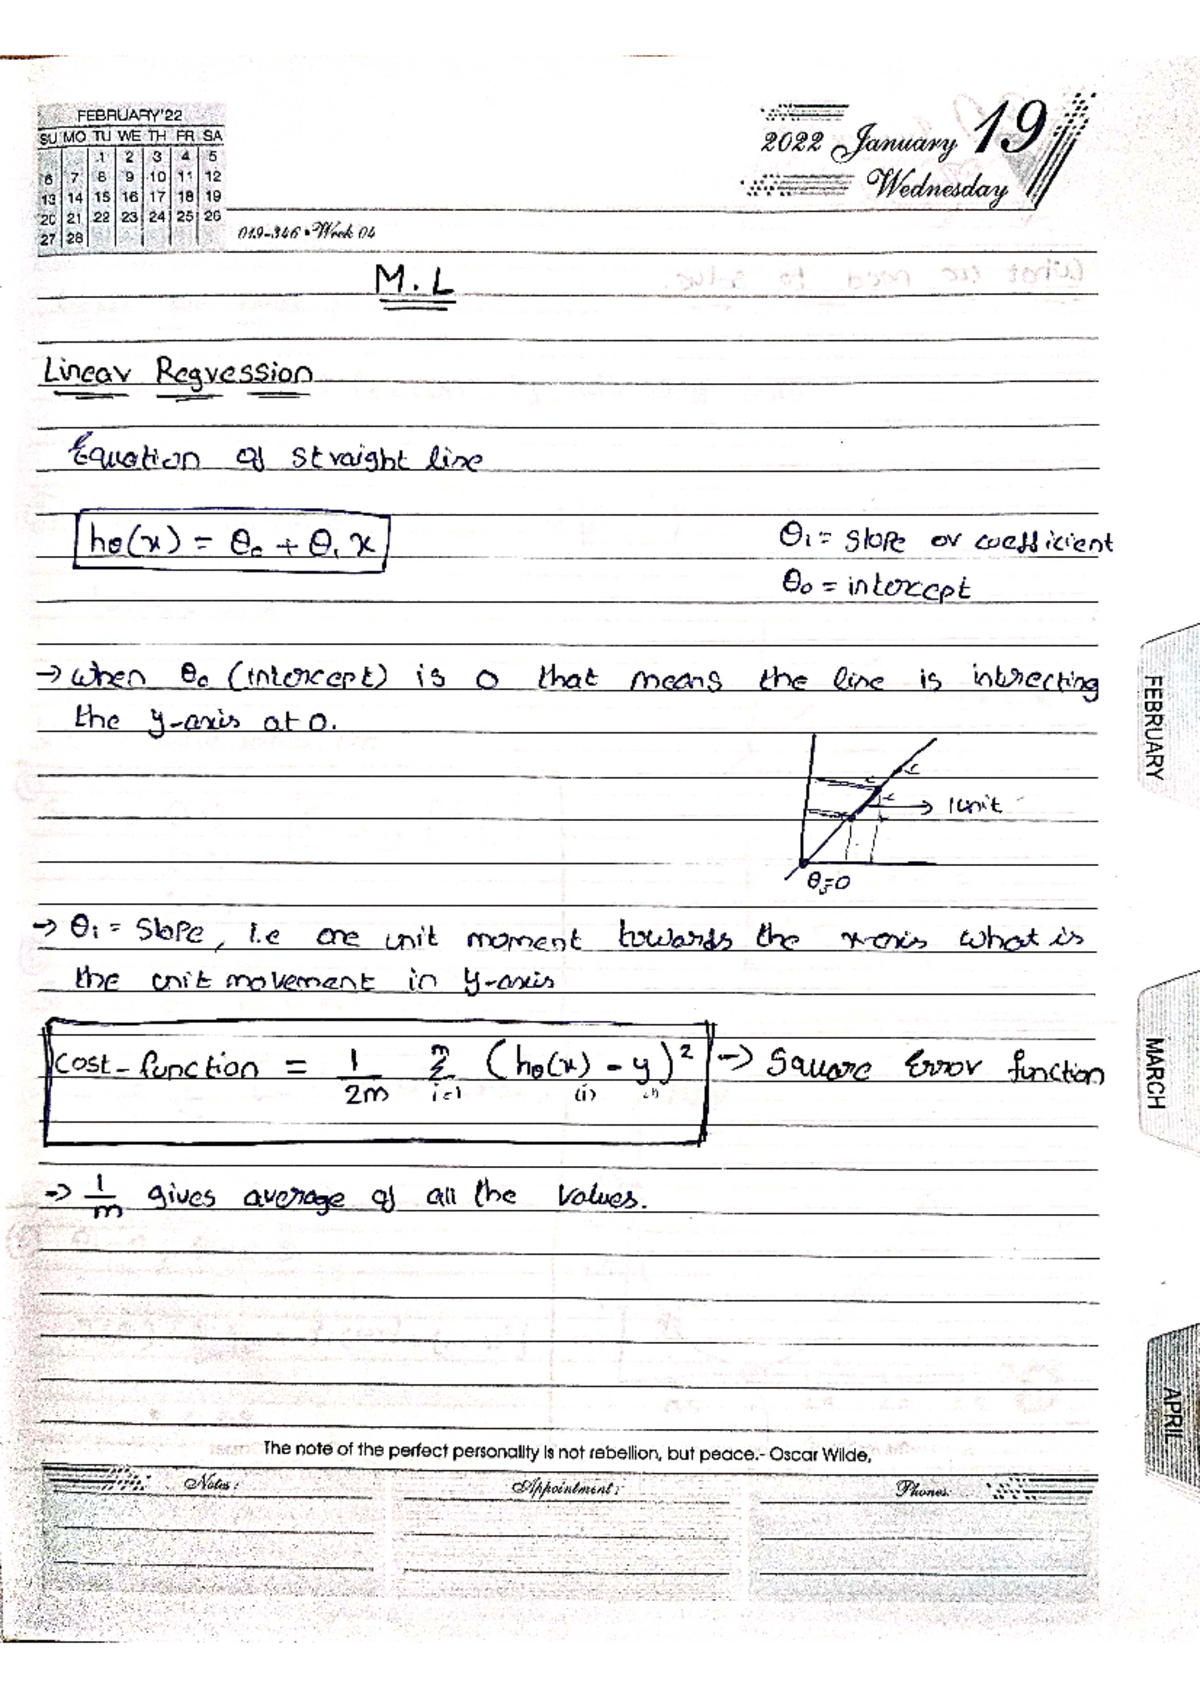 FEBRUARY'22
SU MO TU WE TH FR SA
1 2 3 4 5
6 7 8 9 10 11 12
13 14 15 16 17 18 19
20 21 22 23 24 25 26
27 28
2022 January 19
Wednesday
019-346 • Week 04
M.L
Linear Regression
Equation of straight line
hθ(x) = θ₀ + θ₁ x
θ₁ = slope or coefficient
θ₀ = intercept
→ when θ₀ (intercept) is 0 that means the line is
the y-axis at 0.
1 unit
θ₀=0
→ θ₁ = slope, i.e one unit moment towards the x-axis what is
the unit movement in y-axis
cost-function = 1/2m Σ_{i=1}^{m} (hθ(x)^(i) - y^(i))² → Square Error function
→ 1/m gives average of all the values.
The note of the perfect personality is not rebellion, but peace.- Oscar Wilde,
Notes: Appointment: Phones:
FEBRUARY
MARCH
APRIL